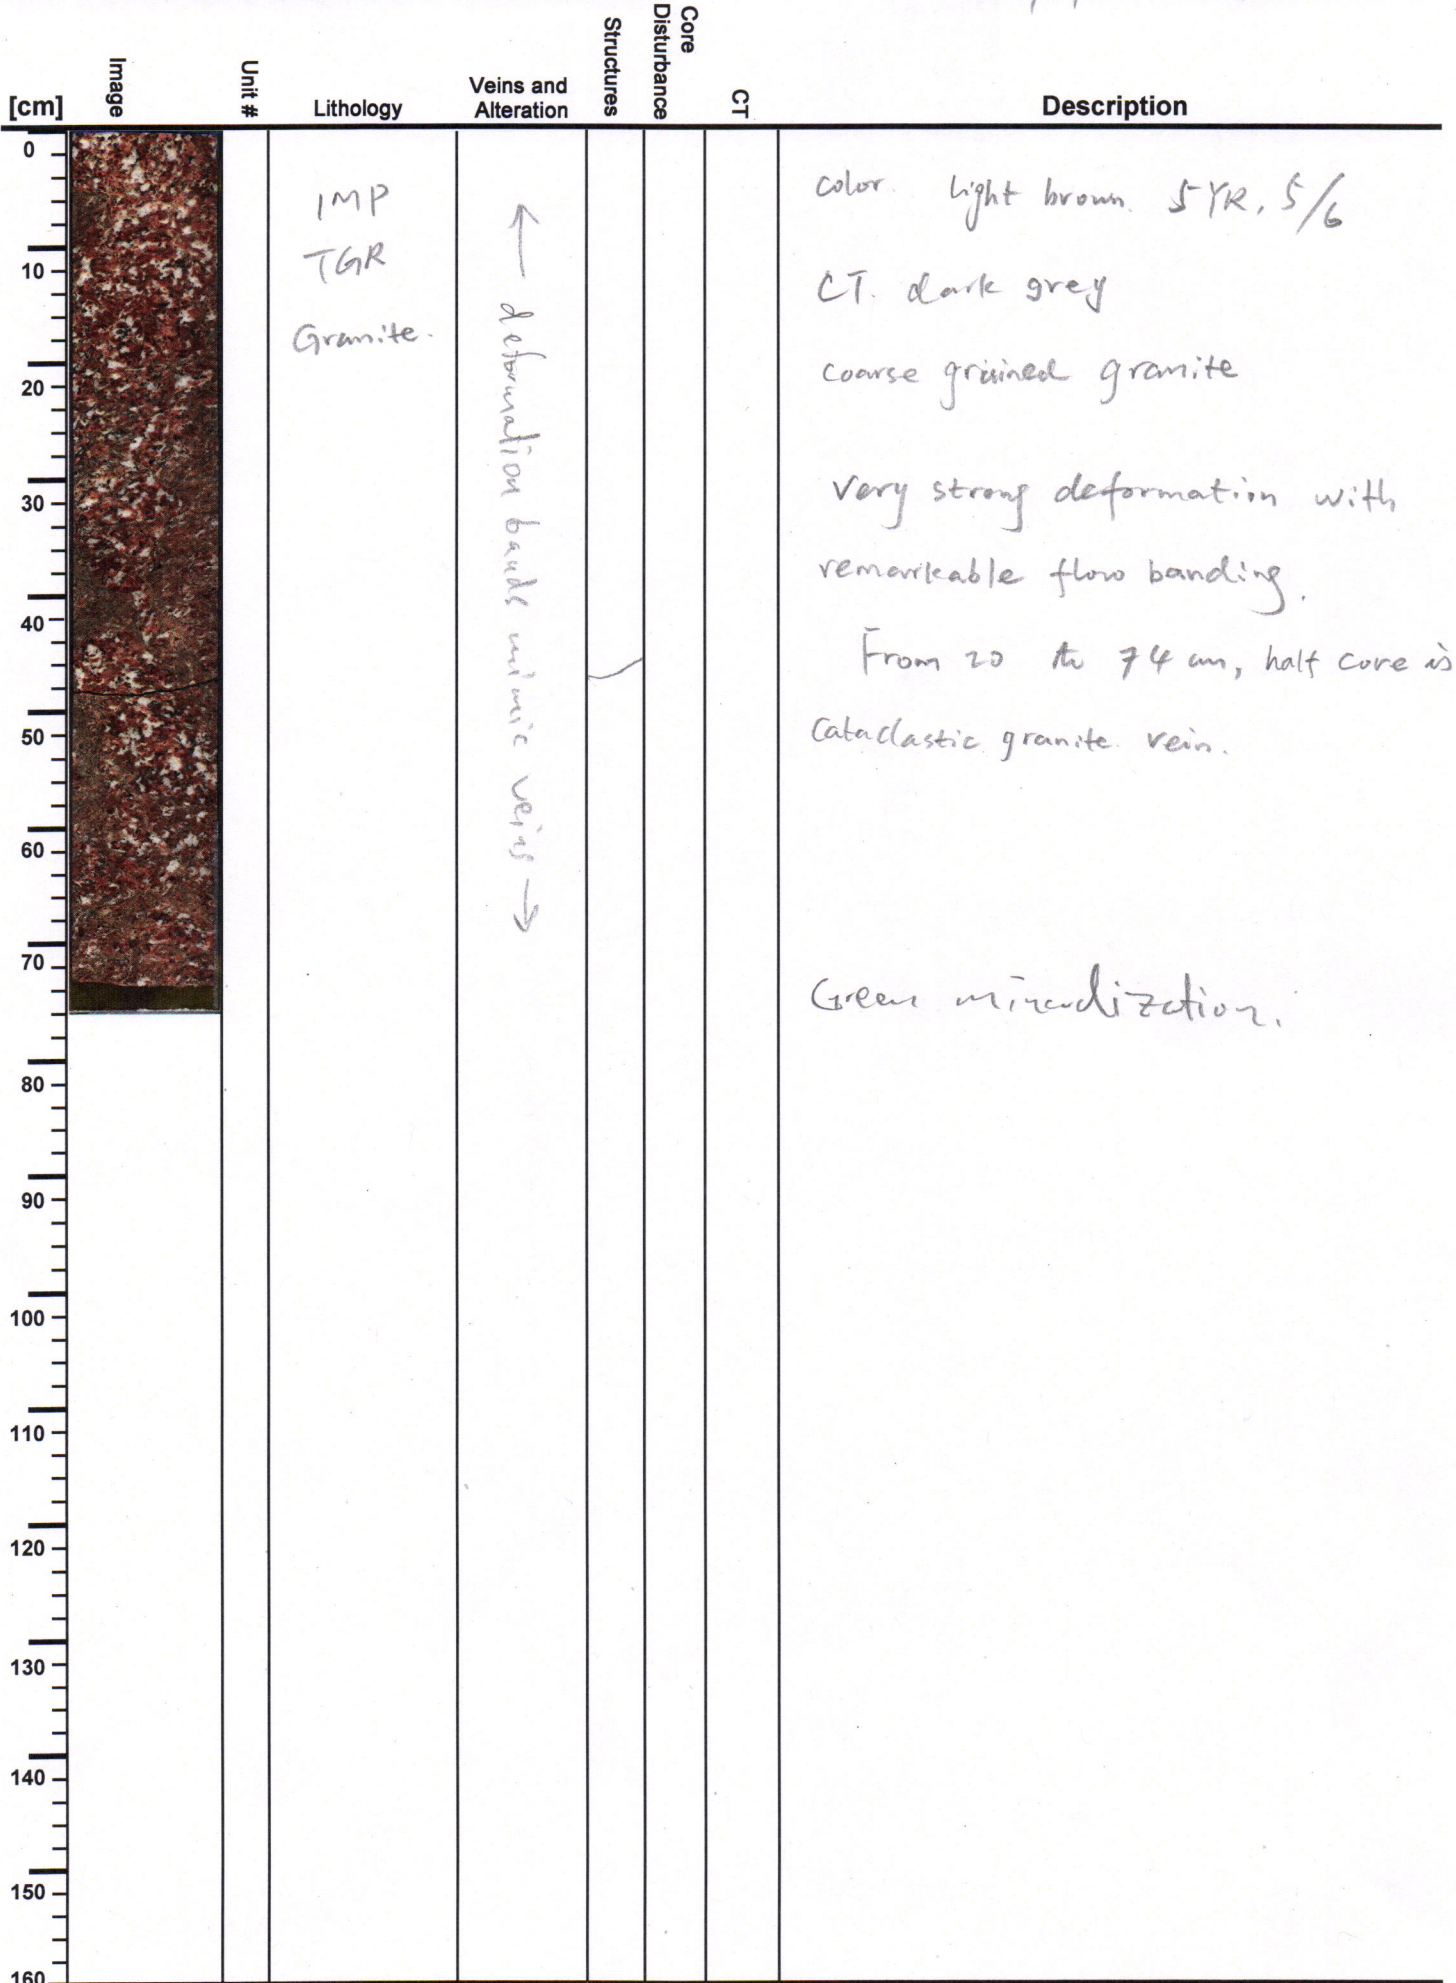 [cm]
Image
Unit #
Lithology
Veins and
Alteration
Structures
Core
Disturbance
CT
Description
0
10
20
30
40
50
60
70
80
90
100
110
120
130
140
150
160
IMP
TGR
Granite.
← deformation bands mimic veins →
color. light brown. 5YR, 5/6
CT. dark grey
coarse grained granite
Very strong deformation with
remarkable flow banding.
From 20 to 74 cm, half core is
Cataclastic granite vein.
Green mineralization.